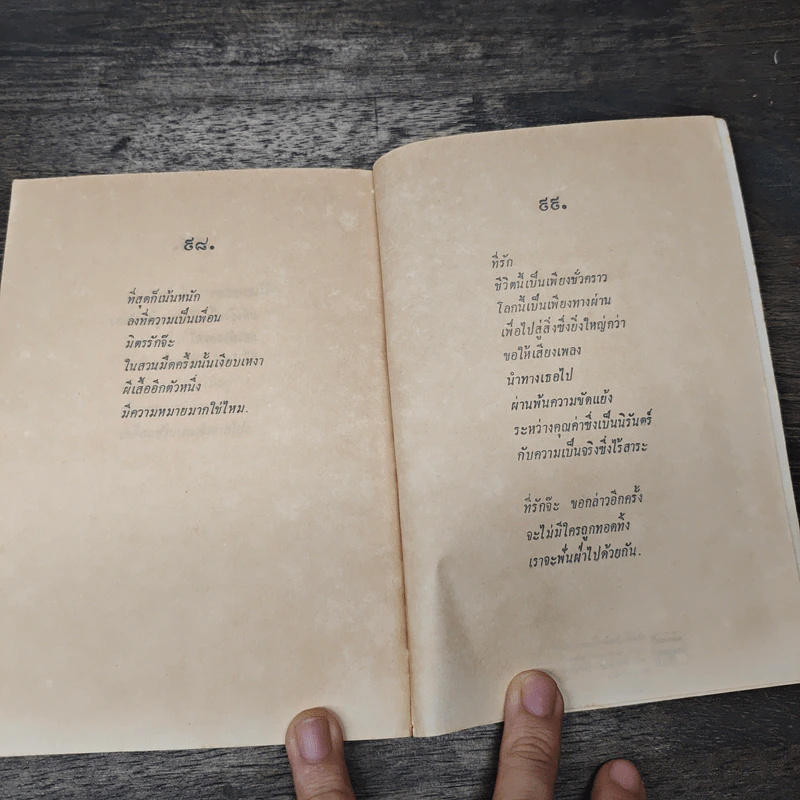 ๙๘.
ที่สุดก็เน้นหนัก
ลงที่ความเป็นเพื่อน
มิตรรักจ๊ะ
ในสวนมืดครึ้มนั้นเงียบเหงา
ผีเสื้ออีกตัวหนึ่ง
มีความหมายมากใช่ไหม.
๙๙.
ที่รัก
ชีวิตนี้เป็นเพียงชั่วคราว
โลกนี้เป็นเพียงทางผ่าน
เพื่อไปสู่สิ่งซึ่งยิ่งใหญ่กว่า
ขอให้เสียงเพลง
นำทางเธอไป
ผ่านพ้นความขัดแย้ง
ระหว่างคุณค่าซึ่งเป็นนิรันดร์
กับความเป็นจริงซึ่งไร้สาระ
ที่รักจ๊ะ ขอกล่าวอีกครั้ง
จะไม่มีใครถูกทอดทิ้ง
เราจะฟันฝ่าไปด้วยกัน.